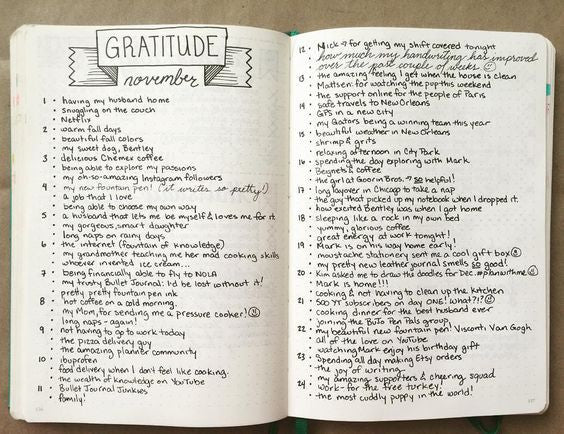 GRATITUDE
november
1 • having my husband home
• snuggling on the couch
• Netflix
2 • warm fall days
• beautiful fall colors
• my sweet dog, Bentley
3 • delicious Chemex coffee
• being able to explore my passions
• my oh-so-amazing Instagram followers
4 • my new fountain pen! (it writes so pretty!)
• a job that I love
• being able to choose my own way
5 • a husband that lets me be myself & loves me for it
• my gorgeous, smart daughter
• long naps on rainy days
6 • the internet (fountain of knowledge)
• my grandmother teaching me her mad cooking skills
• whoever invented ice cream...
7 • being financially able to fly to NOLA
• my trusty Bullet Journal: I'd be lost without it!
• pretty pretty fountain pen ink
8 • hot coffee on a cold morning.
• my Mom, for sending me a pressure cooker!
• long naps - again!
9 • not having to go to work today
• the pizza delivery guy
• the amazing planner community
10 • ibuprofen
• food delivery when I don't feel like cooking.
• the wealth of knowledge on YouTube
11 • Bullet Journal Junkies
• family!
136
12 • Nick → for getting my shift covered tonight
• how much my handwriting has improved
over the past couple of weeks
13 • the amazing feeling I get when the house is clean
• Mattsen: for watching the pup this weekend
• the support online for the people of Paris
14 • safe travels to New Orleans
• GPS in a new city
• my Gators being a winning team this year
15 • beautiful weather in New Orleans
• shrimp & grits
• relaxing afternoon in City Park
16 • spending the day exploring with Mark
• Beignets & coffee
• the girl at Goorin Bros. → so helpful!
17 • long layover in Chicago to take a nap
• the guy that picked up my notebook when I dropped it.
• how excited Bentley was when I got home
18 • sleeping like a rock in my own bed
• yummy, glorious coffee
• great energy at work tonight!
19 • Mark is on his way home early!
• moustache stationery sent me a cool gift box
• my pretty new leather journal smells so good!
20 • Kim asked me to draw the doodles for Dec. #planwithme
• Mark is home!!!
• cooking & not having to clean up the kitchen
21 • 500 YT subscribers on day ONE! What?!?
• cooking dinner for the best husband ever
• joining the BuJo Pen Pals group
22 • my beautiful new fountain pen! Visconti Van Gogh
• all of the love on YouTube
• watching Mark enjoy his birthday gift
23 • Spending all day making Etsy orders
• the joy of writing
• my amazing supporters & cheering squad
24 • work - for the free turkey!
• the most cuddly puppy in the world!
137